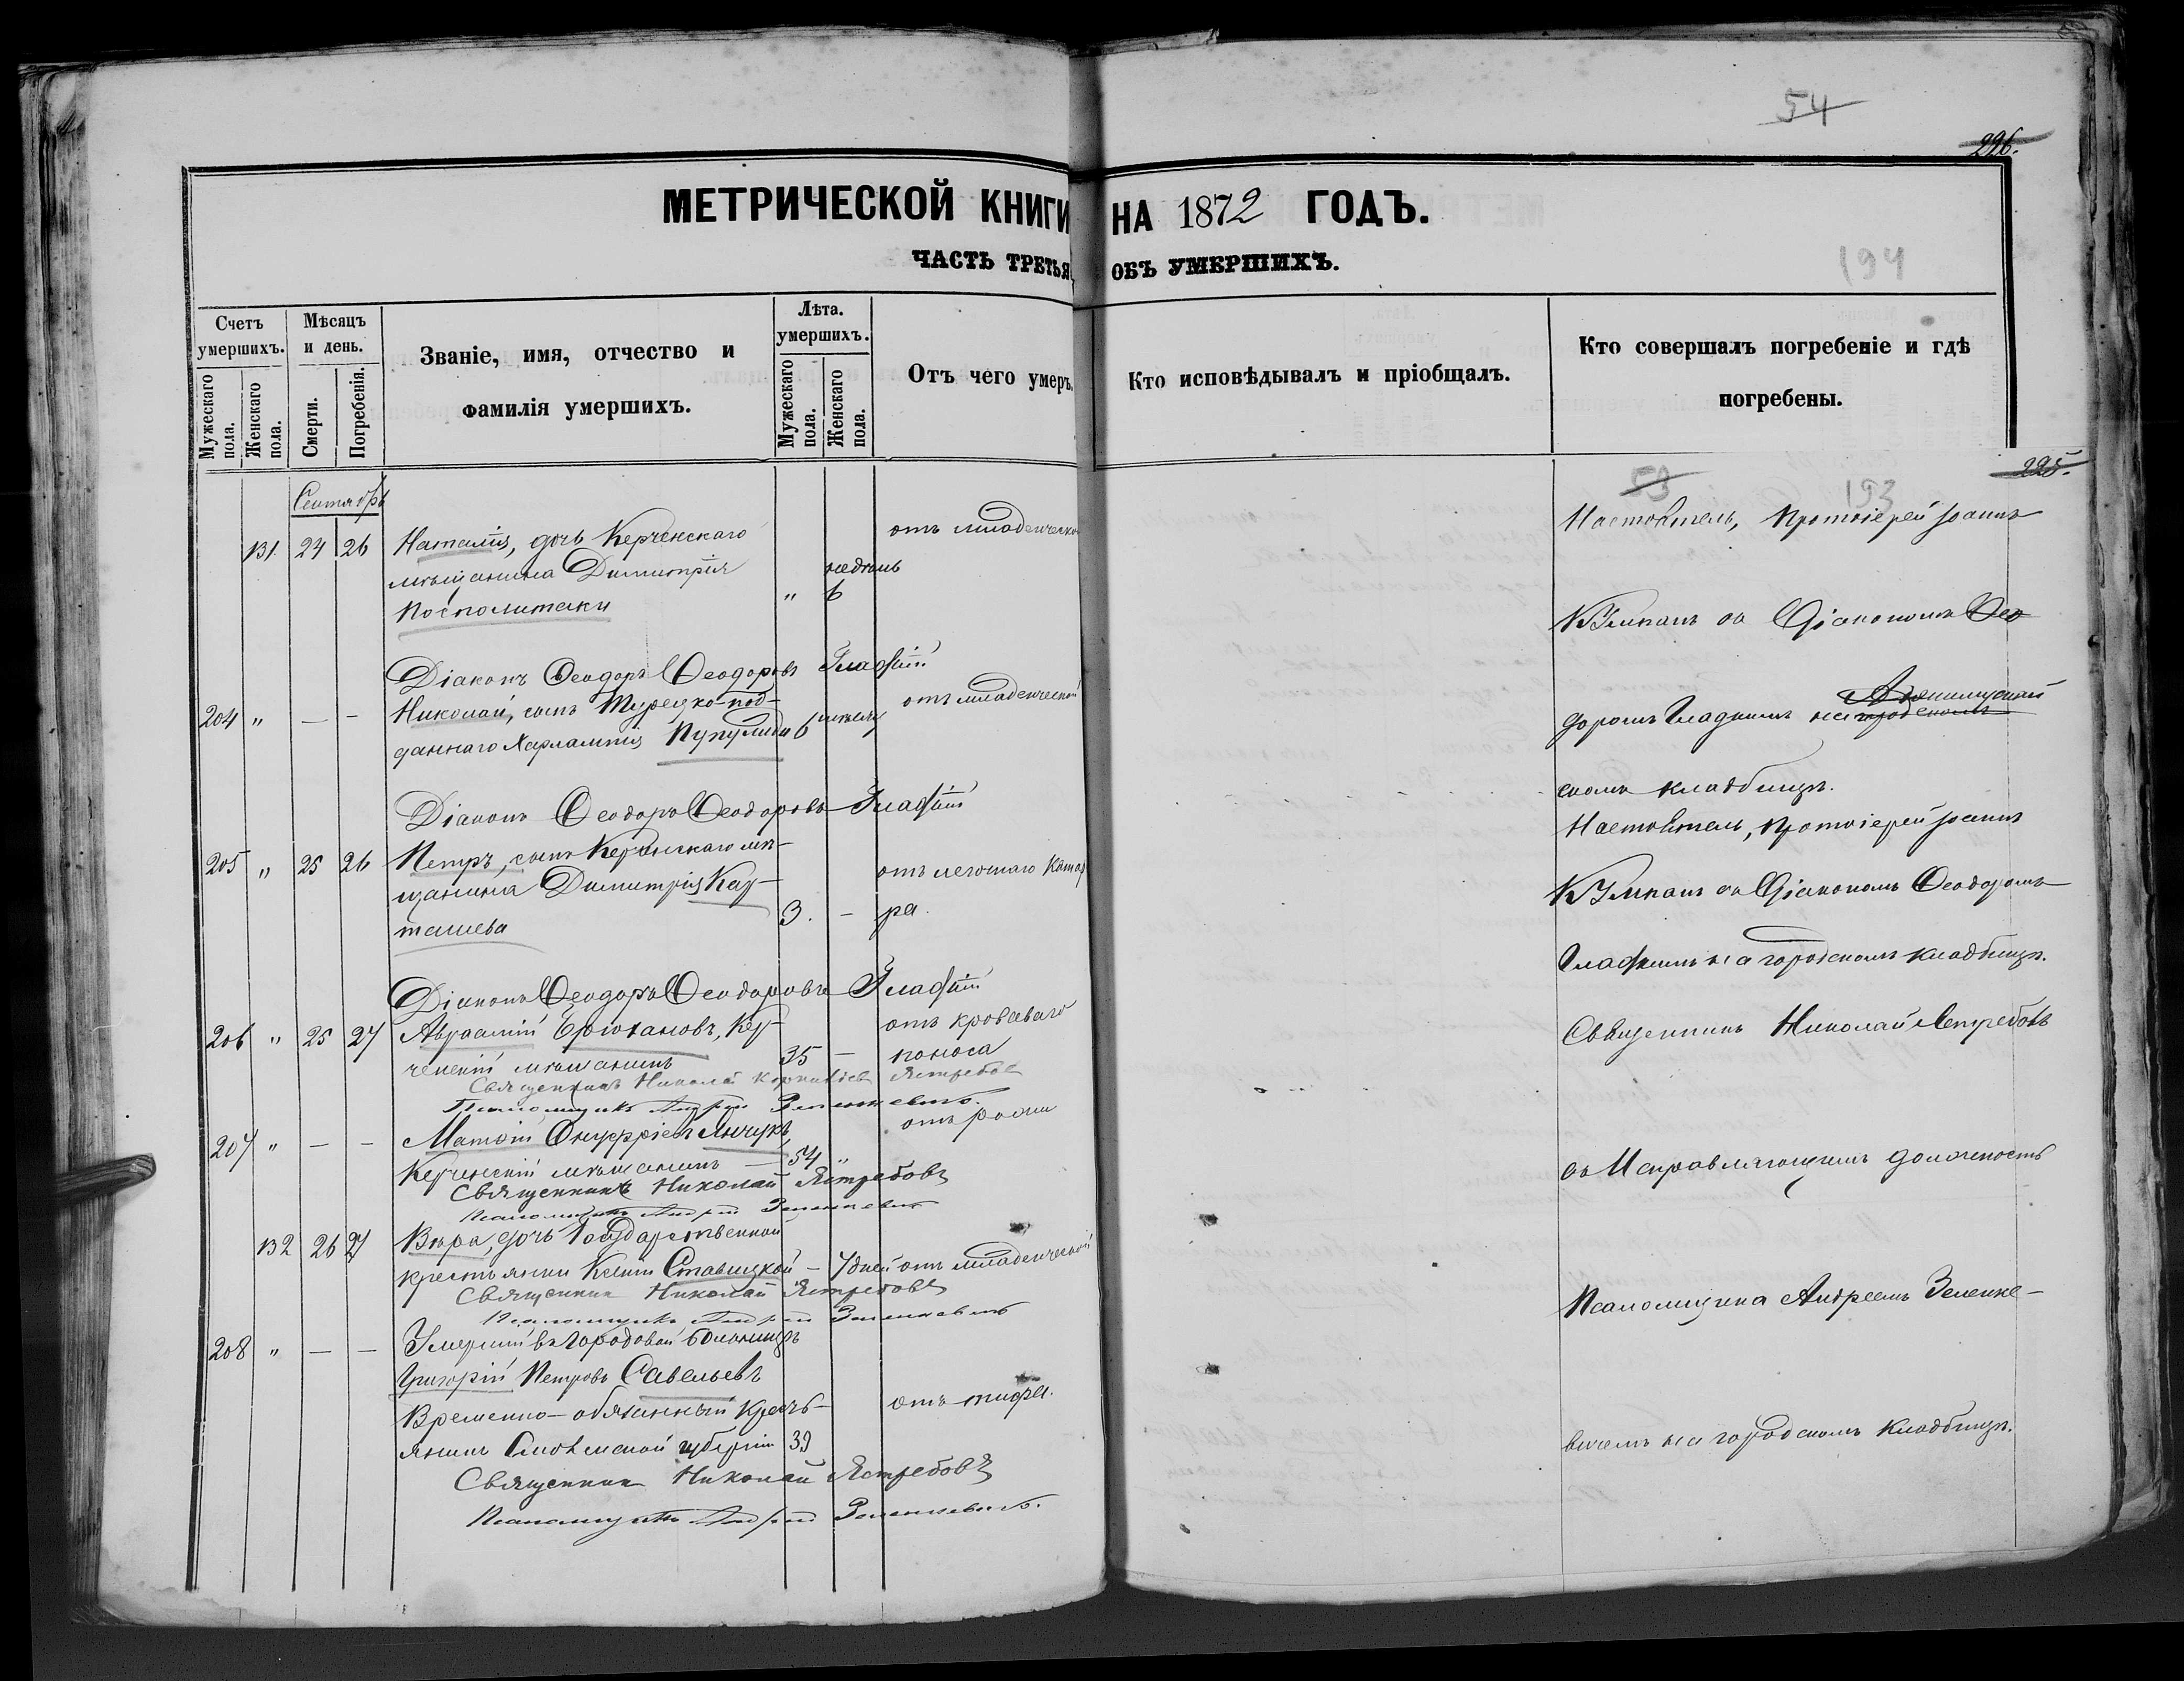 54
226.
МЕТРИЧЕСКОЙ КНИГИ НА 1872 ГОДЪ.
ЧАСТЬ ТРЕТЬЯ, ОБЪ УМЕРШИХЪ.
194
Счетъ умершихъ.
Мужескаго пола.
Женскаго пола.
Мѣсяцъ и день.
Смерти.
Погребенія.
Званіе, имя, отчество и
фамилія умершихъ.
Лѣта. умершихъ.
Мужескаго пола.
Женскаго пола.
Отъ чего умеръ.
Кто исповѣдывалъ и пріобщалъ.
Кто совершалъ погребеніе и гдѣ
погребены.
Сентябрь
131 24 26 Наталія, дочь Керченскаго отъ младенческо
мѣщанина Димитрія недѣль
Посполитаки " 6
Діаконъ Ѳеодоръ Ѳеодоровъ Гладкій
204 " — — Николай, сынъ Турецко-под- отъ младенческой
даннаго Харлампія 6
Діаконъ Ѳеодоръ Ѳеодоровъ Гладкій
205 " 25 26 Петръ, сынъ Керченскаго мѣ-
щанина Димитрія Кар- отъ легочнаго Катар
ташева 3. — ра.
Діаконъ Ѳеодоръ Ѳеодоровъ Гладкій
206 " 25 27 Авраамій Ерюхановъ, Кер- отъ кроваваго
ченскій мѣщанинъ 35 — поноса
Священникъ Николай Ястребовъ
Псаломщикъ Андрей Зеленкевичъ.
207 " — — Матѳій Онуфріевъ отъ
Керченскій мѣщанинъ — 54 "
Священникъ Николай Ястребовъ
Псаломщикъ Андрей Зеленкевичъ
132 26 27 Вѣра, дочь Государственной
крестьянки Ксеніи Ставицкой — 7 дней отъ младенческой
Священникъ Николай Ястребовъ
Псаломщикъ Андрей Зеленкевичъ
208 " — — Умершій въ Городовой больницѣ
Григорій Петровъ Савельевъ
Временно-обязанный Кресть- отъ тифа.
янинъ Смоленской губерніи 39
Священникъ Николай Ястребовъ
Псаломщикъ Андрей Зеленкевичъ.
225.
53
193
Настоятель, Протоіерей Іоаннъ
Кумпанъ съ Діакономъ Ѳео
доромъ Гладкимъ на городскомъ
скомъ кладбищѣ.
Настоятель, Протоіерей Іоаннъ
Кумпанъ съ Діакономъ Ѳеодоромъ
Гладкимъ на городскомъ кладбищѣ.
Священникъ Николай Ястребовъ
съ Исправляющимъ должность
Псаломщика Андреемъ Зеленке-
вичемъ на городскомъ кладбищѣ.